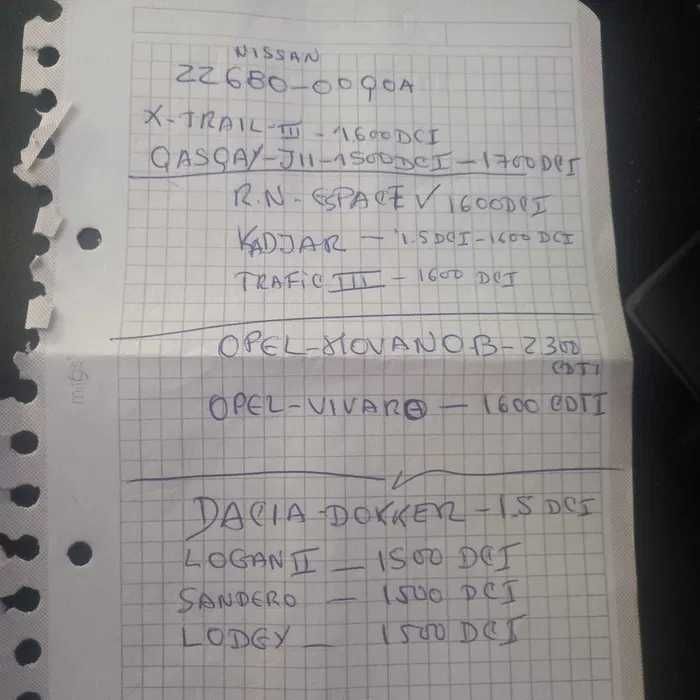 NISSAN
22680-0090A
X-TRAIL-III-1600DCI
QASQAY-J11-1500DCI-1700DCI
R.N-ESPACE V 1600DCI
KADJAR - 1.5DCI-1600 DCI
TRAFIC III - 1600 DCI
OPEL-MOVANO B-2300
CDTI
OPEL-VIVARO - 1600 CDTI
DACIA-DOKKER-1.5 DCI
LOGAN II - 1500 DCI
SANDERO - 1500 DCI
LODGY - 1500 DCI